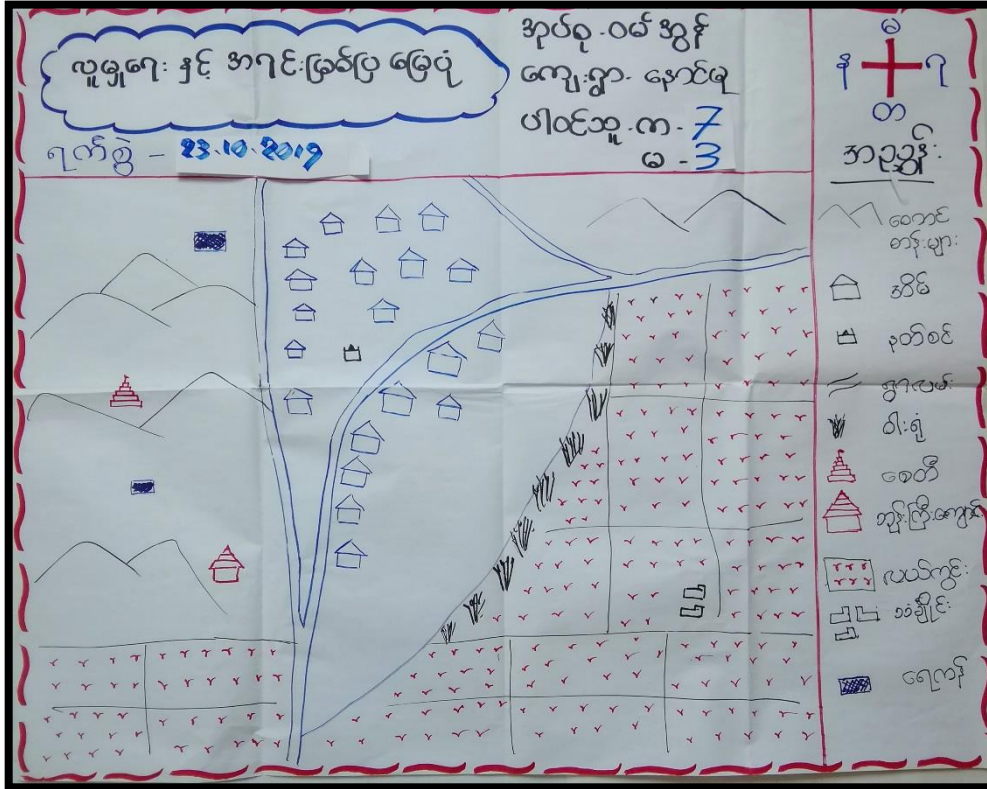 လူမှုရေး နှင့် အရင်းမြစ်ပြ မြေပုံ
ရက်စွဲ - 23.10.2019
အုပ်စု - ဝမ်အွန်
ကျေးရွာ - နောင်မု
ပါဝင်သူ - က - 7
မ - 3
မ
န ရ
တ
အညွှန်း
တောင်
တန်းများ
အိမ်
နတ်စင်
ရွာလမ်း
ဝါးရုံ
စေတီ
ဘုန်းကြီးကျောင်း
လယ်ကွင်း
သင်္ချိုင်း
ရေကန်